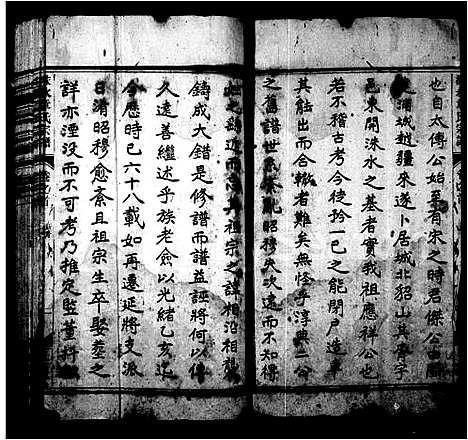 也自太傅公始至有宋之時君傑公由
之浦城越疆來遂卜居城北貂山其序字
邑東開洣水之基者實我祖應祥公也
若不稽古考今徒矜一己之能閉戶造車
其蚩出而合轍者難矣無怪乎淳典二公
之舊譜世系紊亂昭穆失次遠而不知得
近而忘其祖宗之諱相沿相襲
鑄成大錯是修譜而譜益誣將何以傳
久遠善繼述乎族老僉以光緒乙亥迄
今應時已六十八載如再遷延將支派
日淆昭穆愈紊且祖宗生卒娶葬之
詳亦湮没而不可考乃推定監董